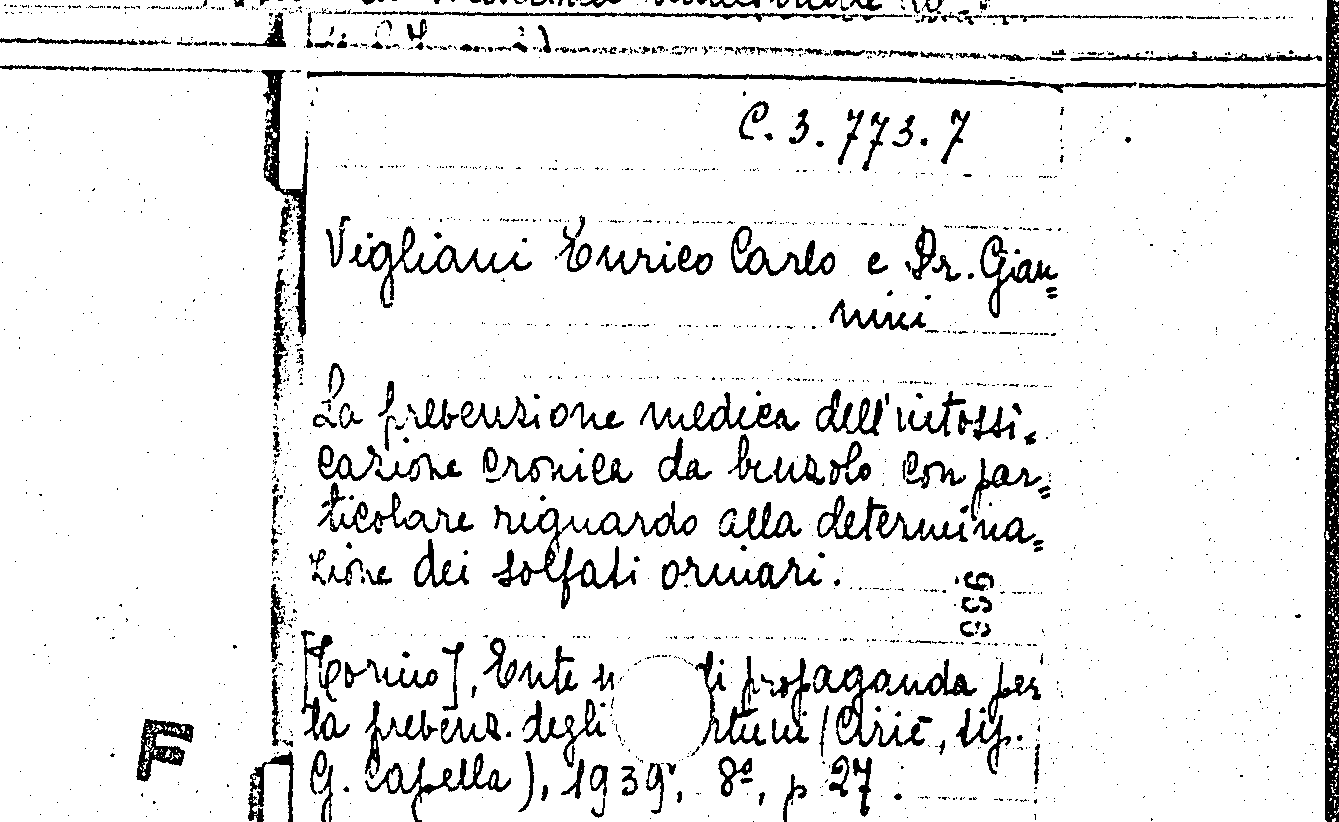 C. 3. 773. 7
Vigliani Enrico Carlo e Dr. Gian=
nini
La prevenzione medica dell'intossi=
cazione cronica da benzolo con par=
ticolare riguardo alla determina=
zione dei solfati orinari.
996
[Torino], Ente n di propaganda per
la prevenz. degli rtuni (Ciriè, tip.
G. Capella), 1939, 8º, p 27.
F